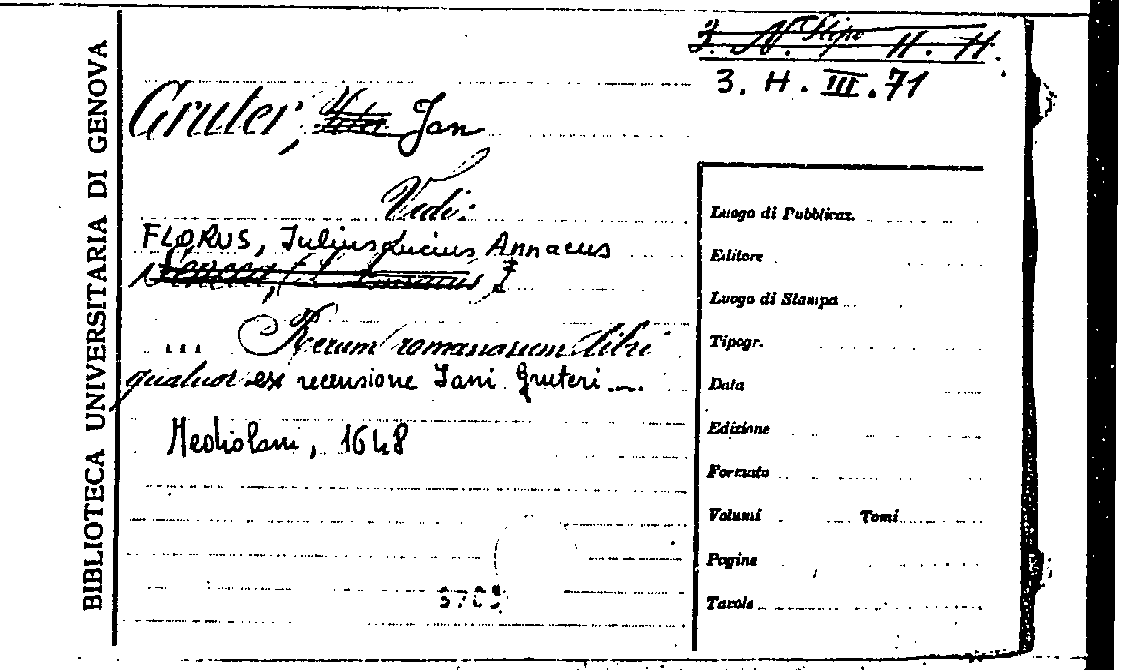 BIBLIOTECA UNIVERSITARIA DI GENOVA
3. N. H. H.
3. H. III. 71
Gruter, Jan
Vedi:
FLORUS, Iulius Lucius Annaeus
Seneca,
... Rerum romanarum libri
quatuor ex recensione Iani Gruteri ...
Mediolani, 1648
3703
Luogo di Pubblicaz.
Editore
Luogo di Stampa
Tipogr.
Data
Edizione
Formato
Volumi Tomi
Pagine
Tavole